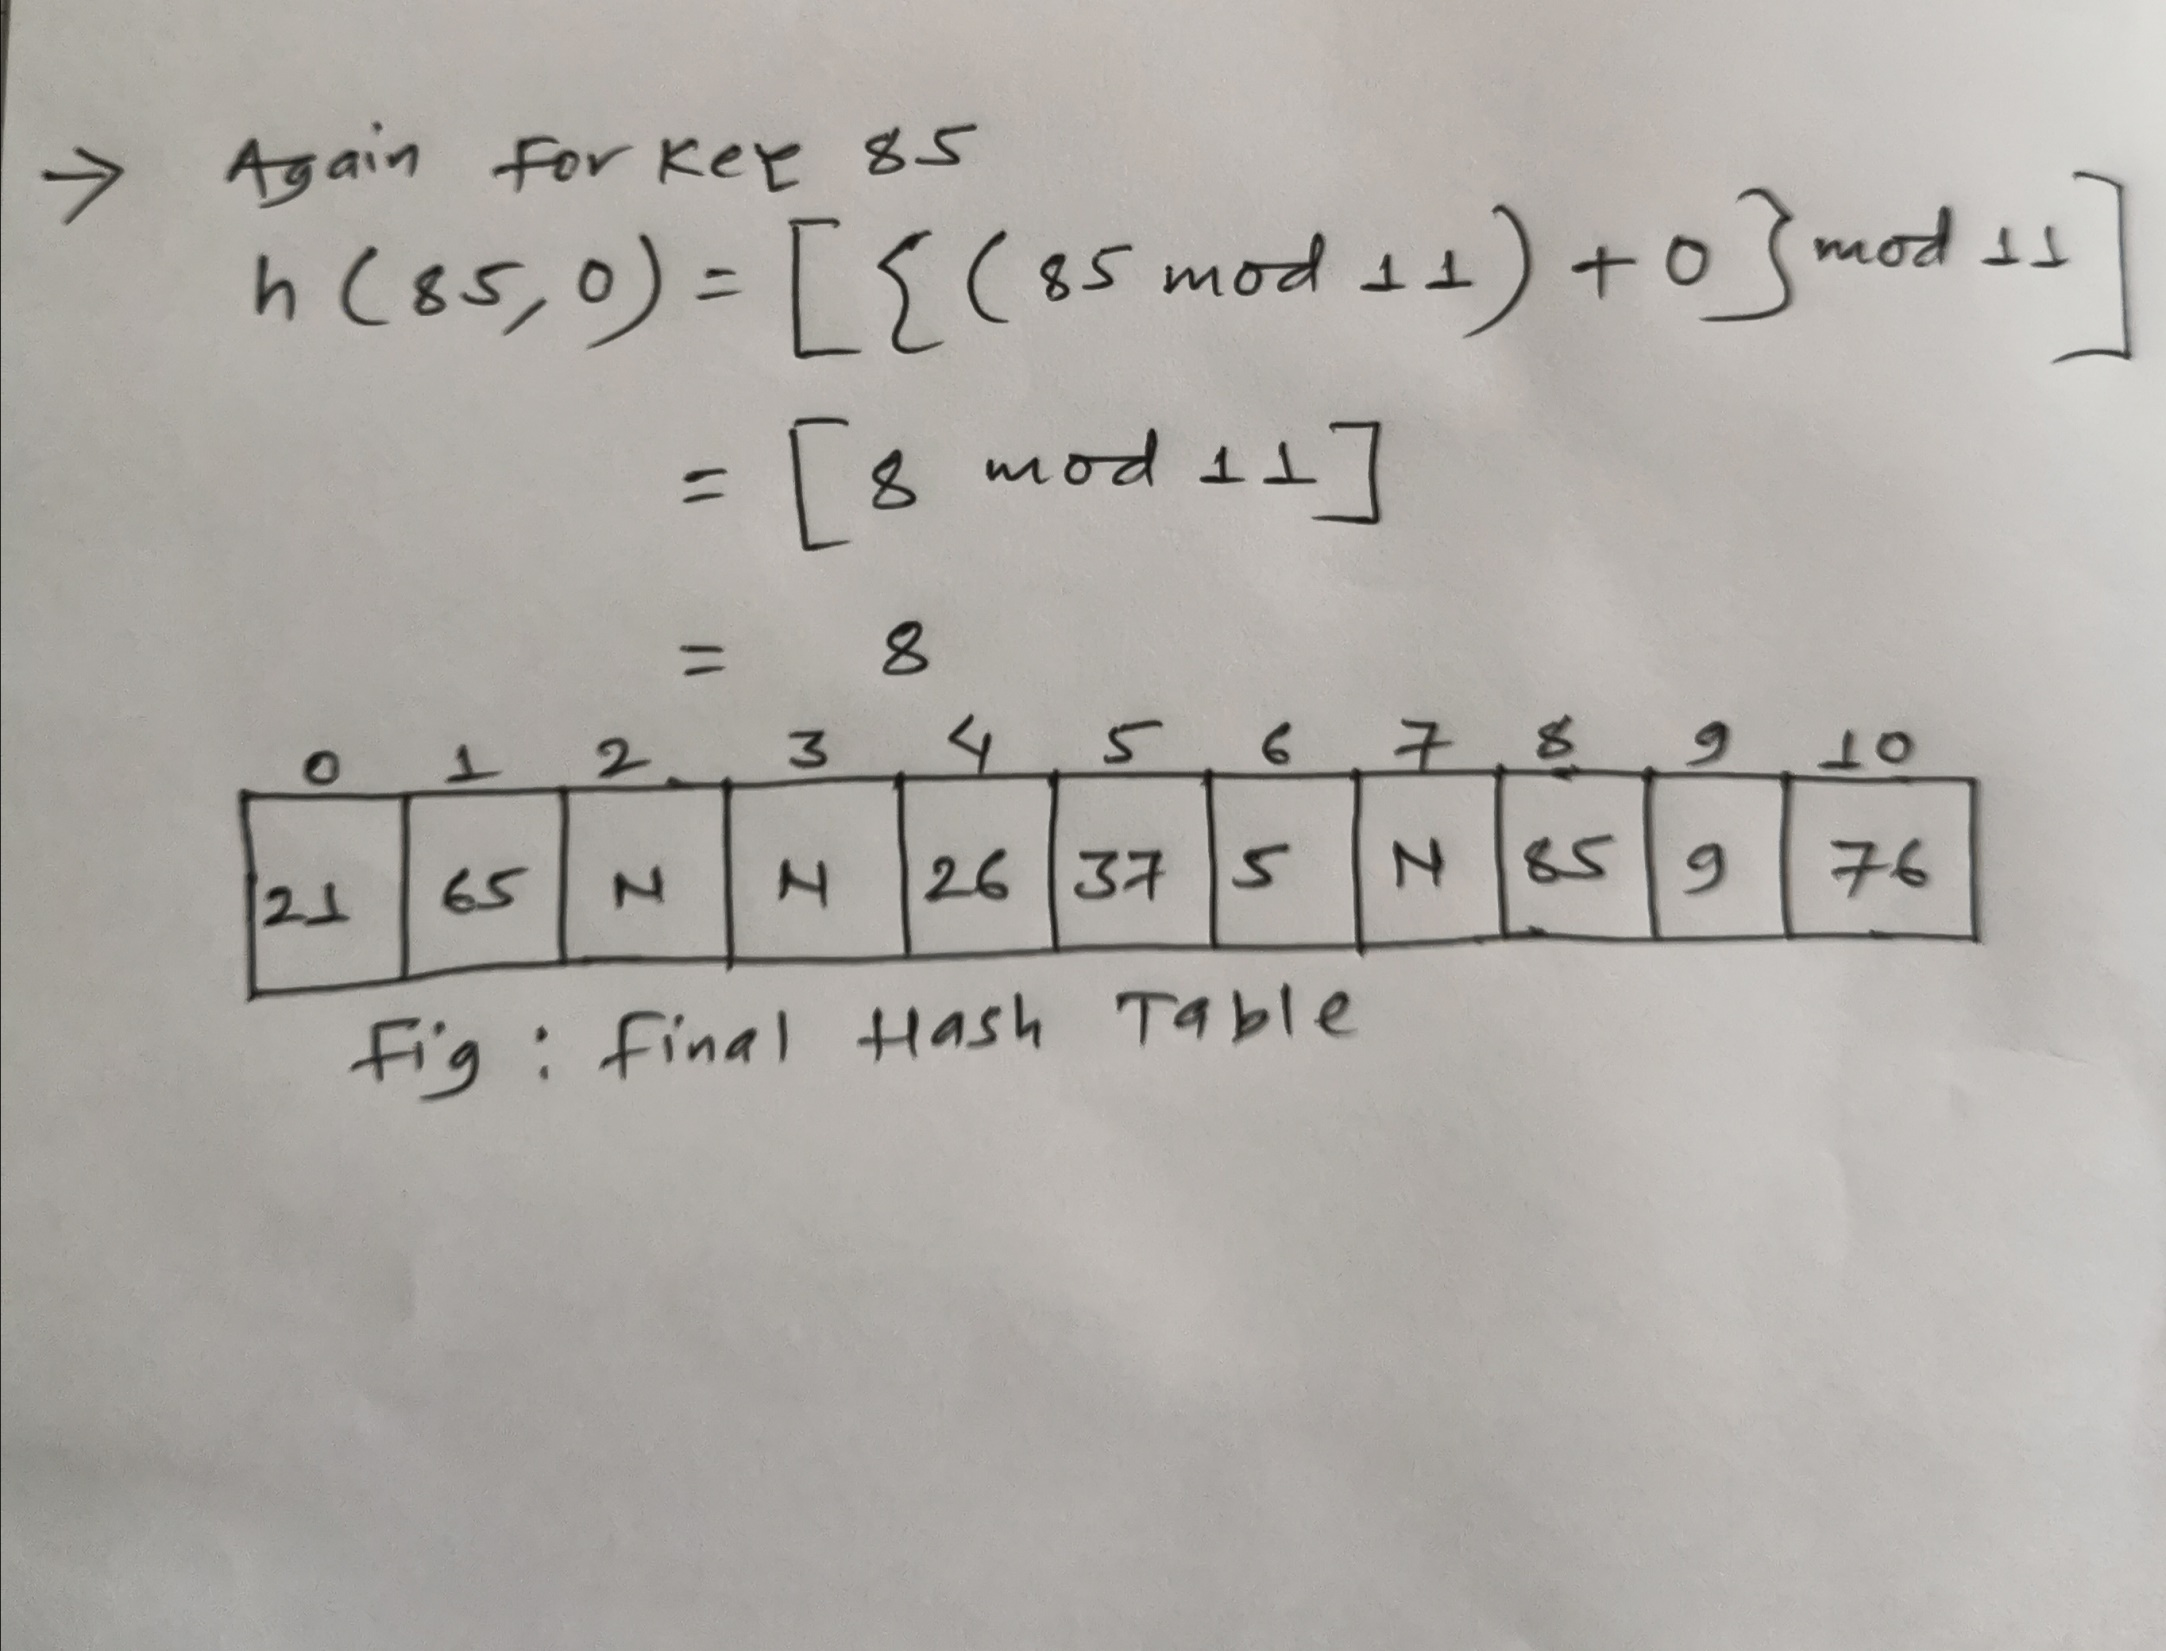 → Again for Key 85
h(85,0) = [{(85 mod 11) + 0} mod 11]
= [8 mod 11]
= 8
0 1 2 3 4 5 6 7 8 9 10
21 65 N N 26 37 5 N 85 9 76
fig : final Hash Table